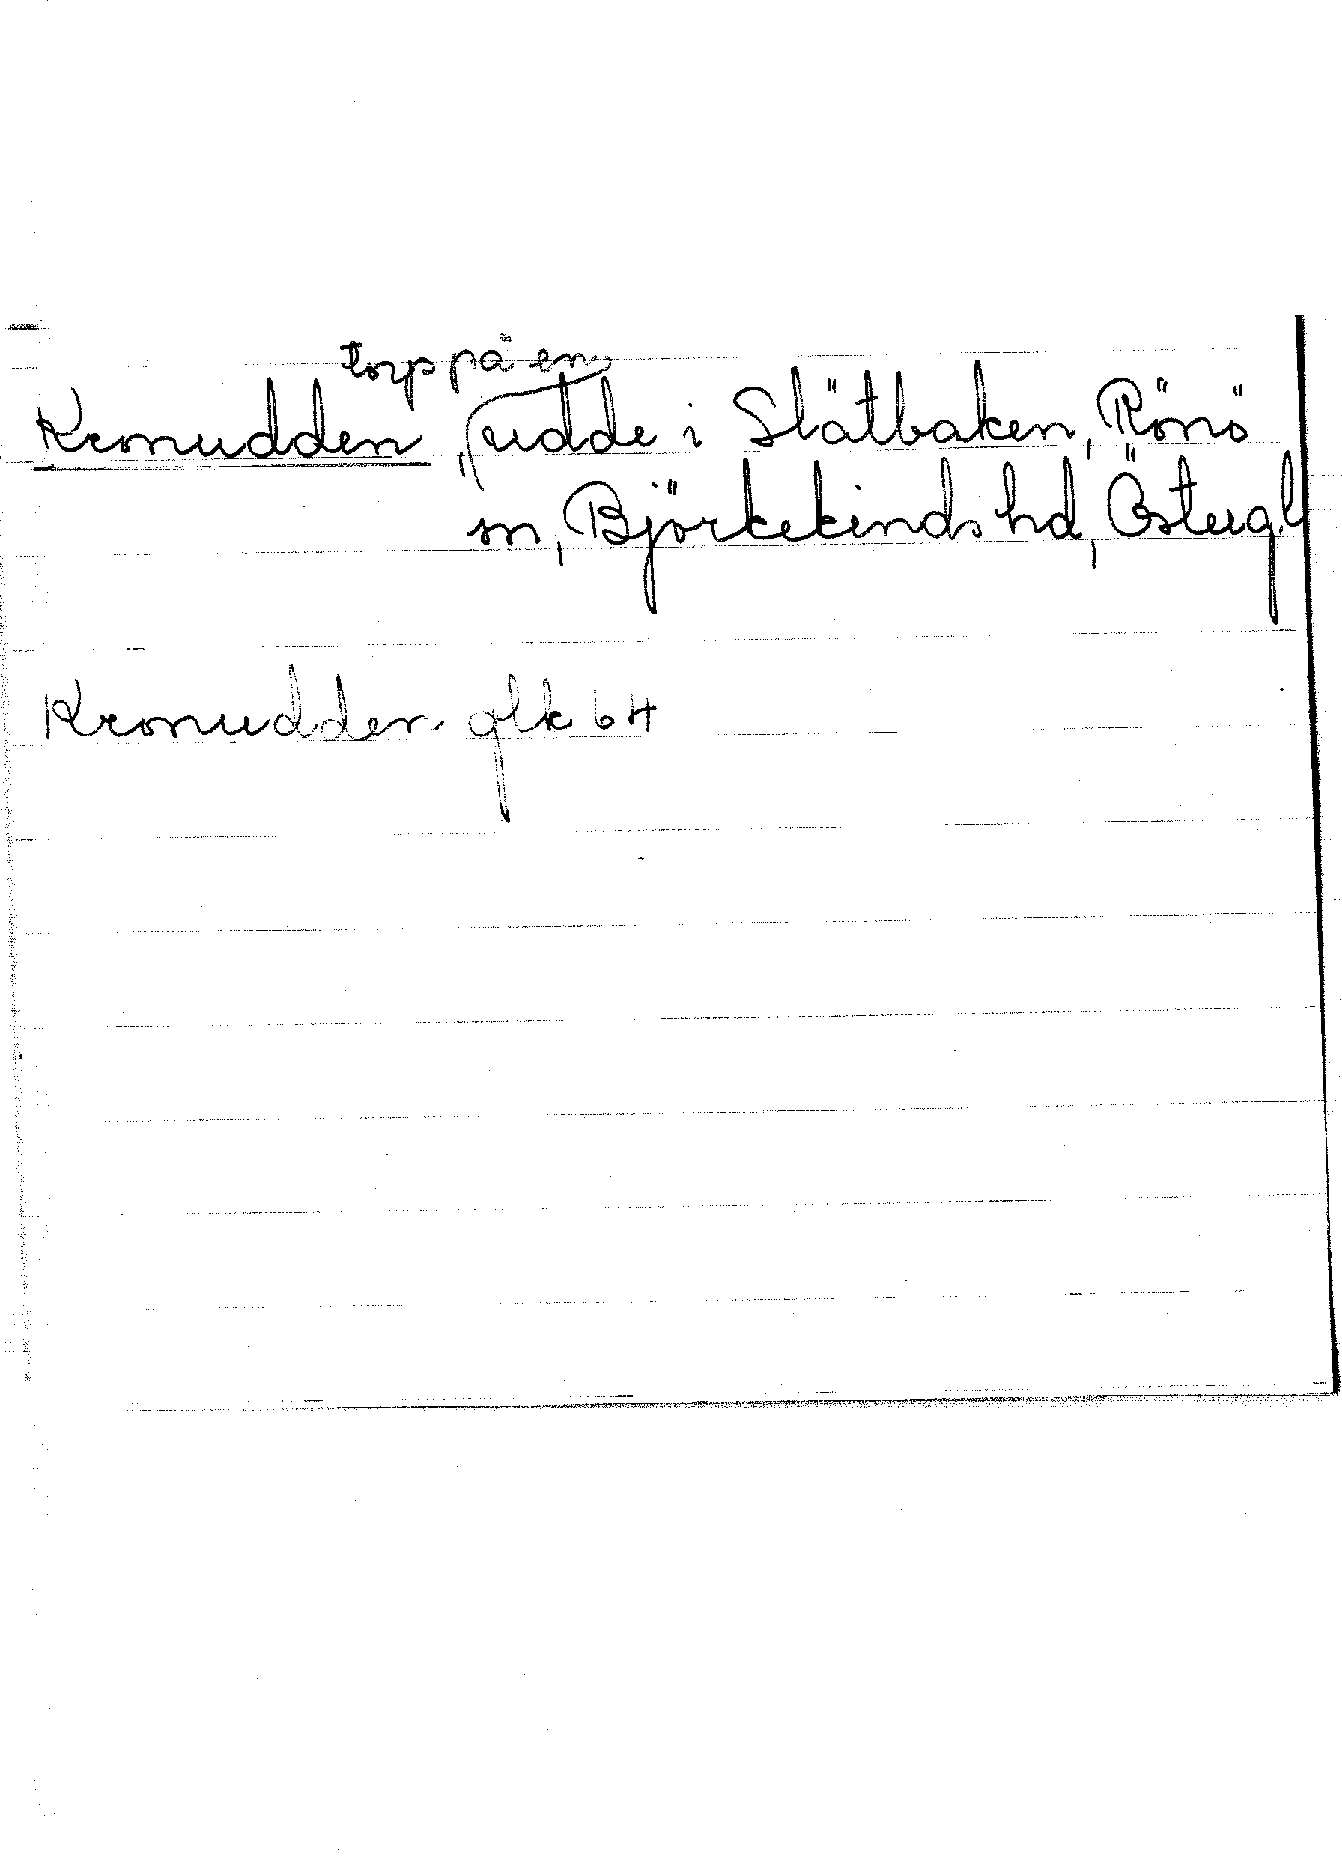 torp på en
Kronudden, udde i Slätbaken, Rönö
sn, Björkekinds hd, Östergl
Kronudden glk 64